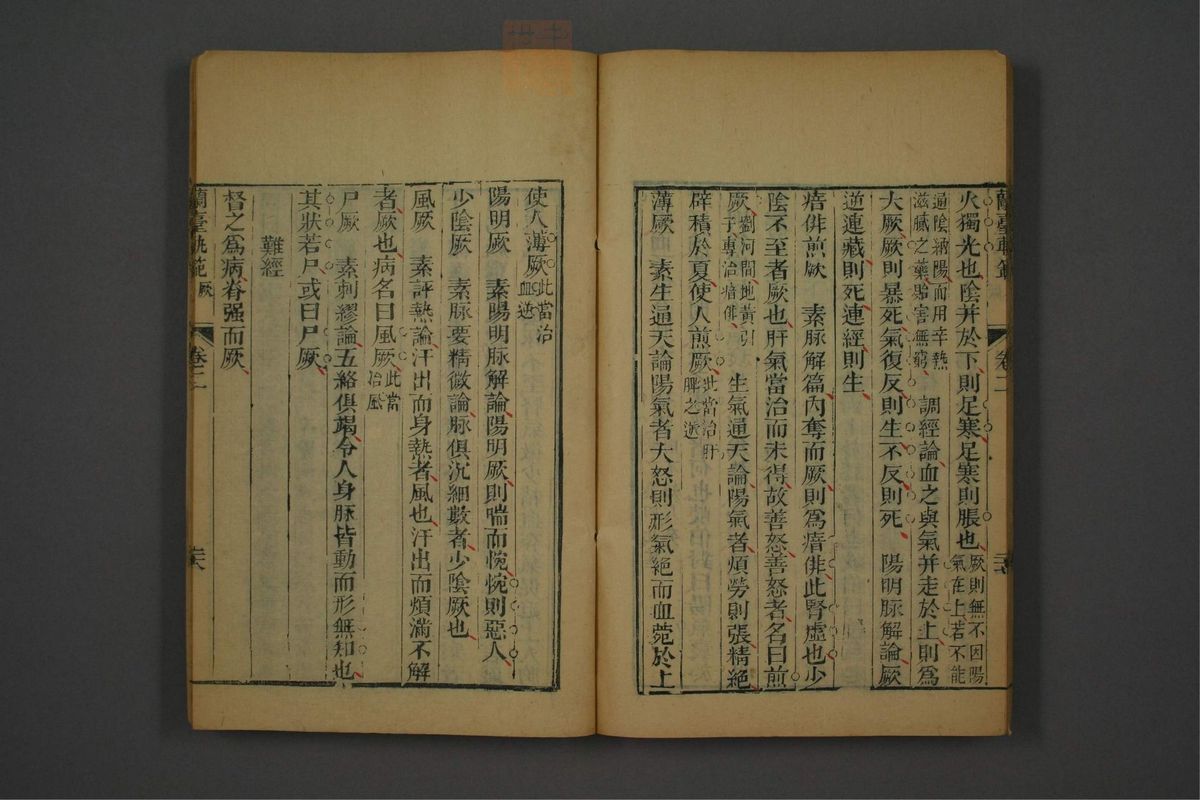 火獨光也陰并於下則足寒足寒則脹也厥則無不因陽氣在上若不能
過陰納陽而用辛熱滋膩之藥貽害無窮 調經論血之與氣并走於上則爲
大厥厥則暴死氣復反則生不反則死 陽明脉解論厥
逆連藏則死連經則生
瘖俳煎厥 素脉解篇內奪而厥則爲瘖俳此腎虛也少
陰不至者厥也肝氣當治而未得故善怒善怒者名曰煎
厥劉河間地黃引子專治瘖俳 生氣通天論陽氣者煩勞則張精絕
辟積於夏使人煎厥此當治肝脾之逆
薄厥 素生通天論陽氣者大怒則形氣絕而血菀於上
卷二
使人薄厥此當治血逆
陽明厥 素陽明脉解論陽明厥則喘而惋惋則惡人
少陰厥 素脉要精微論脉俱沉細數者少陰厥也
風厥 素評熱論汗出而身熱者風也汗出而煩滿不解
者厥也病名曰風厥此當治風
尸厥 素刺繆論五絡俱竭令人身脉皆動而形無知也
其狀若尸或曰尸厥
難經
督之爲病脊强而厥
蘭臺軌範 厥 卷二